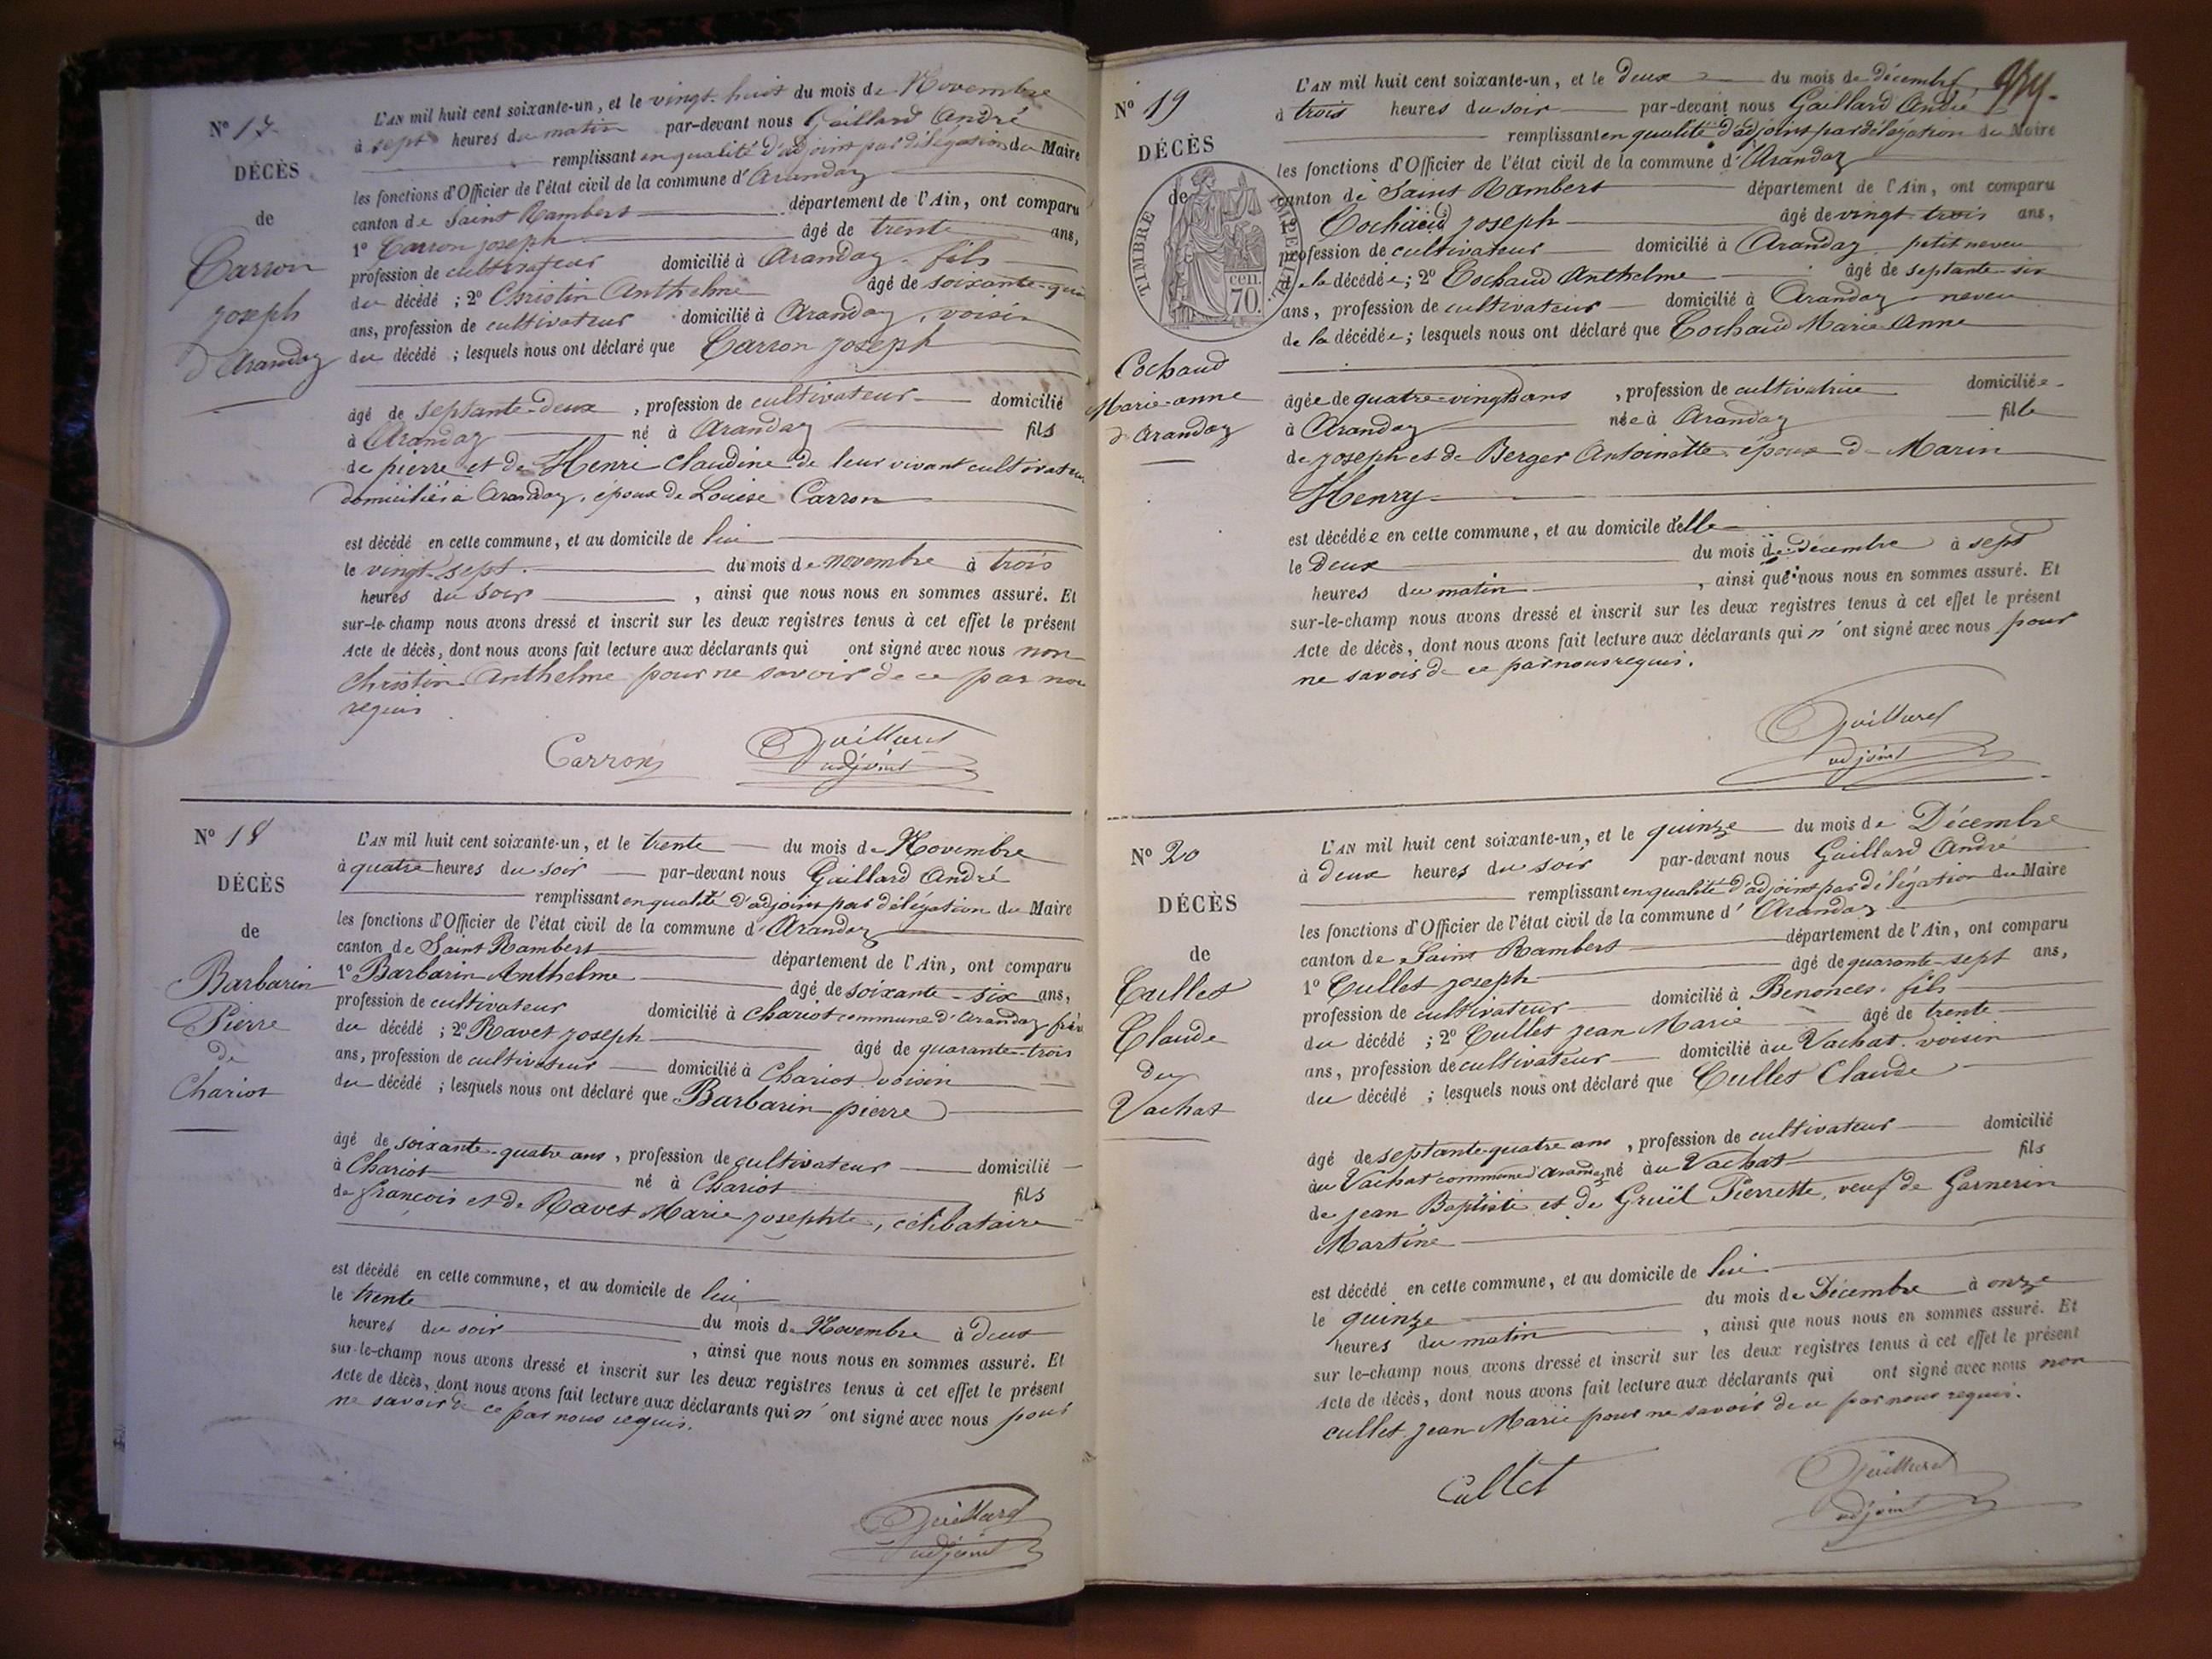 N° 17
DÉCÈS
de
Carron
joseph
d'Arandaz
L'AN mil huit cent soixante-un, et le vingt-huit du mois de Novembre
à sept heures du matin par-devant nous Gaillard André
remplissant en qualité d'adjoint par délégation du Maire
les fonctions d'Officier de l'état civil de la commune d'Arandaz
canton de Saint Rambert département de l'Ain, ont comparu
1° Carron joseph âgé de trente ans,
profession de cultivateur domicilié à Arandaz, fils
du décédé ; 2° Christin Anthelme âgé de soixante-
ans, profession de cultivateur domicilié à Arandaz, voisin
du décédé ; lesquels nous ont déclaré que Carron joseph
âgé de septante-deux, profession de cultivateur domicilié
à Arandaz né à Arandaz fils
de pierre et de Henri Claudine de leur vivant cultivateurs
domiciliés à Arandaz, époux de Louise Carron
est décédé en cette commune, et au domicile de lui
le vingt-sept du mois de novembre à trois
heures du soir, ainsi que nous nous en sommes assuré. Et
sur-le-champ nous avons dressé et inscrit sur les deux registres tenus à cet effet le présent
Acte de décès, dont nous avons fait lecture aux déclarants qui ont signé avec nous non
Christin Anthelme pour ne savoir de ce par nous
requis
Carron Gaillard
adjoint
N° 18
DÉCÈS
de
Barbarin
Pierre
de
Chariot
L'AN mil huit cent soixante-un, et le trente du mois de Novembre
à quatre heures du soir par-devant nous Gaillard André
remplissant en qualité d'adjoint par délégation du Maire
les fonctions d'Officier de l'état civil de la commune d'Arandaz
canton de Saint Rambert département de l'Ain, ont comparu
1° Barbarin Anthelme âgé de soixante-six ans,
profession de cultivateur domicilié à Chariot commune d'Arandaz frère
du décédé ; 2° Ravet joseph âgé de quarante-trois
ans, profession de cultivateur domicilié à Chariot, voisin
du décédé ; lesquels nous ont déclaré que Barbarin pierre
âgé de soixante-quatre ans, profession de cultivateur domicilié
à Chariot né à Chariot fils
de françois et de Ravet Marie josephte, célibataire
est décédé en cette commune, et au domicile de lui
le trente du mois de Novembre à deux
heures du soir, ainsi que nous nous en sommes assuré. Et
sur-le-champ nous avons dressé et inscrit sur les deux registres tenus à cet effet le présent
Acte de décès, dont nous avons fait lecture aux déclarants qui n'ont signé avec nous pour
ne savoir de ce par nous requis.
Gaillard
adjoint
N° 19
DÉCÈS
de
TIMBRE IMPÉRIAL
70 cen.
Cochaud
Marie-anne
d'Arandaz
L'AN mil huit cent soixante-un, et le deux du mois de décembre
à trois heures du soir par-devant nous Gaillard André
remplissant en qualité d'adjoint par délégation du Maire
les fonctions d'Officier de l'état civil de la commune d'Arandaz
canton de Saint Rambert département de l'Ain, ont comparu
Cochaud joseph âgé de vingt-trois ans,
profession de cultivateur domicilié à Arandaz petit neveu
de la décédée ; 2° Cochaud Anthelme âgé de septante-six
ans, profession de cultivateur domicilié à Arandaz neveu
de la décédée ; lesquels nous ont déclaré que Cochaud Marie-Anne
âgée de quatre-vingts ans, profession de cultivatrice domiciliée
à Arandaz née à Arandaz fille
de joseph et de Berger Antoinette, épouse de Marin
Henry
est décédée en cette commune, et au domicile d'elle
le deux du mois de décembre à sept
heures du matin, ainsi que nous nous en sommes assuré. Et
sur-le-champ nous avons dressé et inscrit sur les deux registres tenus à cet effet le présent
Acte de décès, dont nous avons fait lecture aux déclarants qui n'ont signé avec nous pour
ne savoir de ce par nous requis.
Gaillard
adjoint
N° 20
DÉCÈS
de
Cullet
Claude
du
Vachat
L'AN mil huit cent soixante-un, et le quinze du mois de Décembre
à deux heures du soir par-devant nous Gaillard André
remplissant en qualité d'adjoint par délégation du Maire
les fonctions d'Officier de l'état civil de la commune d'Arandaz
canton de Saint Rambert département de l'Ain, ont comparu
1° Cullet joseph âgé de quarante-sept ans,
profession de cultivateur domicilié à Benonces, fils
du décédé ; 2° Cullet jean Marie âgé de trente
ans, profession de cultivateur domicilié au Vachat, voisin
du décédé ; lesquels nous ont déclaré que Cullet Claude
âgé de septante-quatre ans, profession de cultivateur domicilié
au Vachat commune d'Arandaz né au Vachat fils
de jean Baptiste et de Gruël Pierrette, veuf de Garnerin
Martine
est décédé en cette commune, et au domicile de lui
le quinze du mois de Décembre à onze
heures du matin, ainsi que nous nous en sommes assuré. Et
sur le-champ nous avons dressé et inscrit sur les deux registres tenus à cet effet le présent
Acte de décès, dont nous avons fait lecture aux déclarants qui ont signé avec nous non
cullet jean Marie pour ne savoir de ce par nous requis.
Cullet Gaillard
adjoint